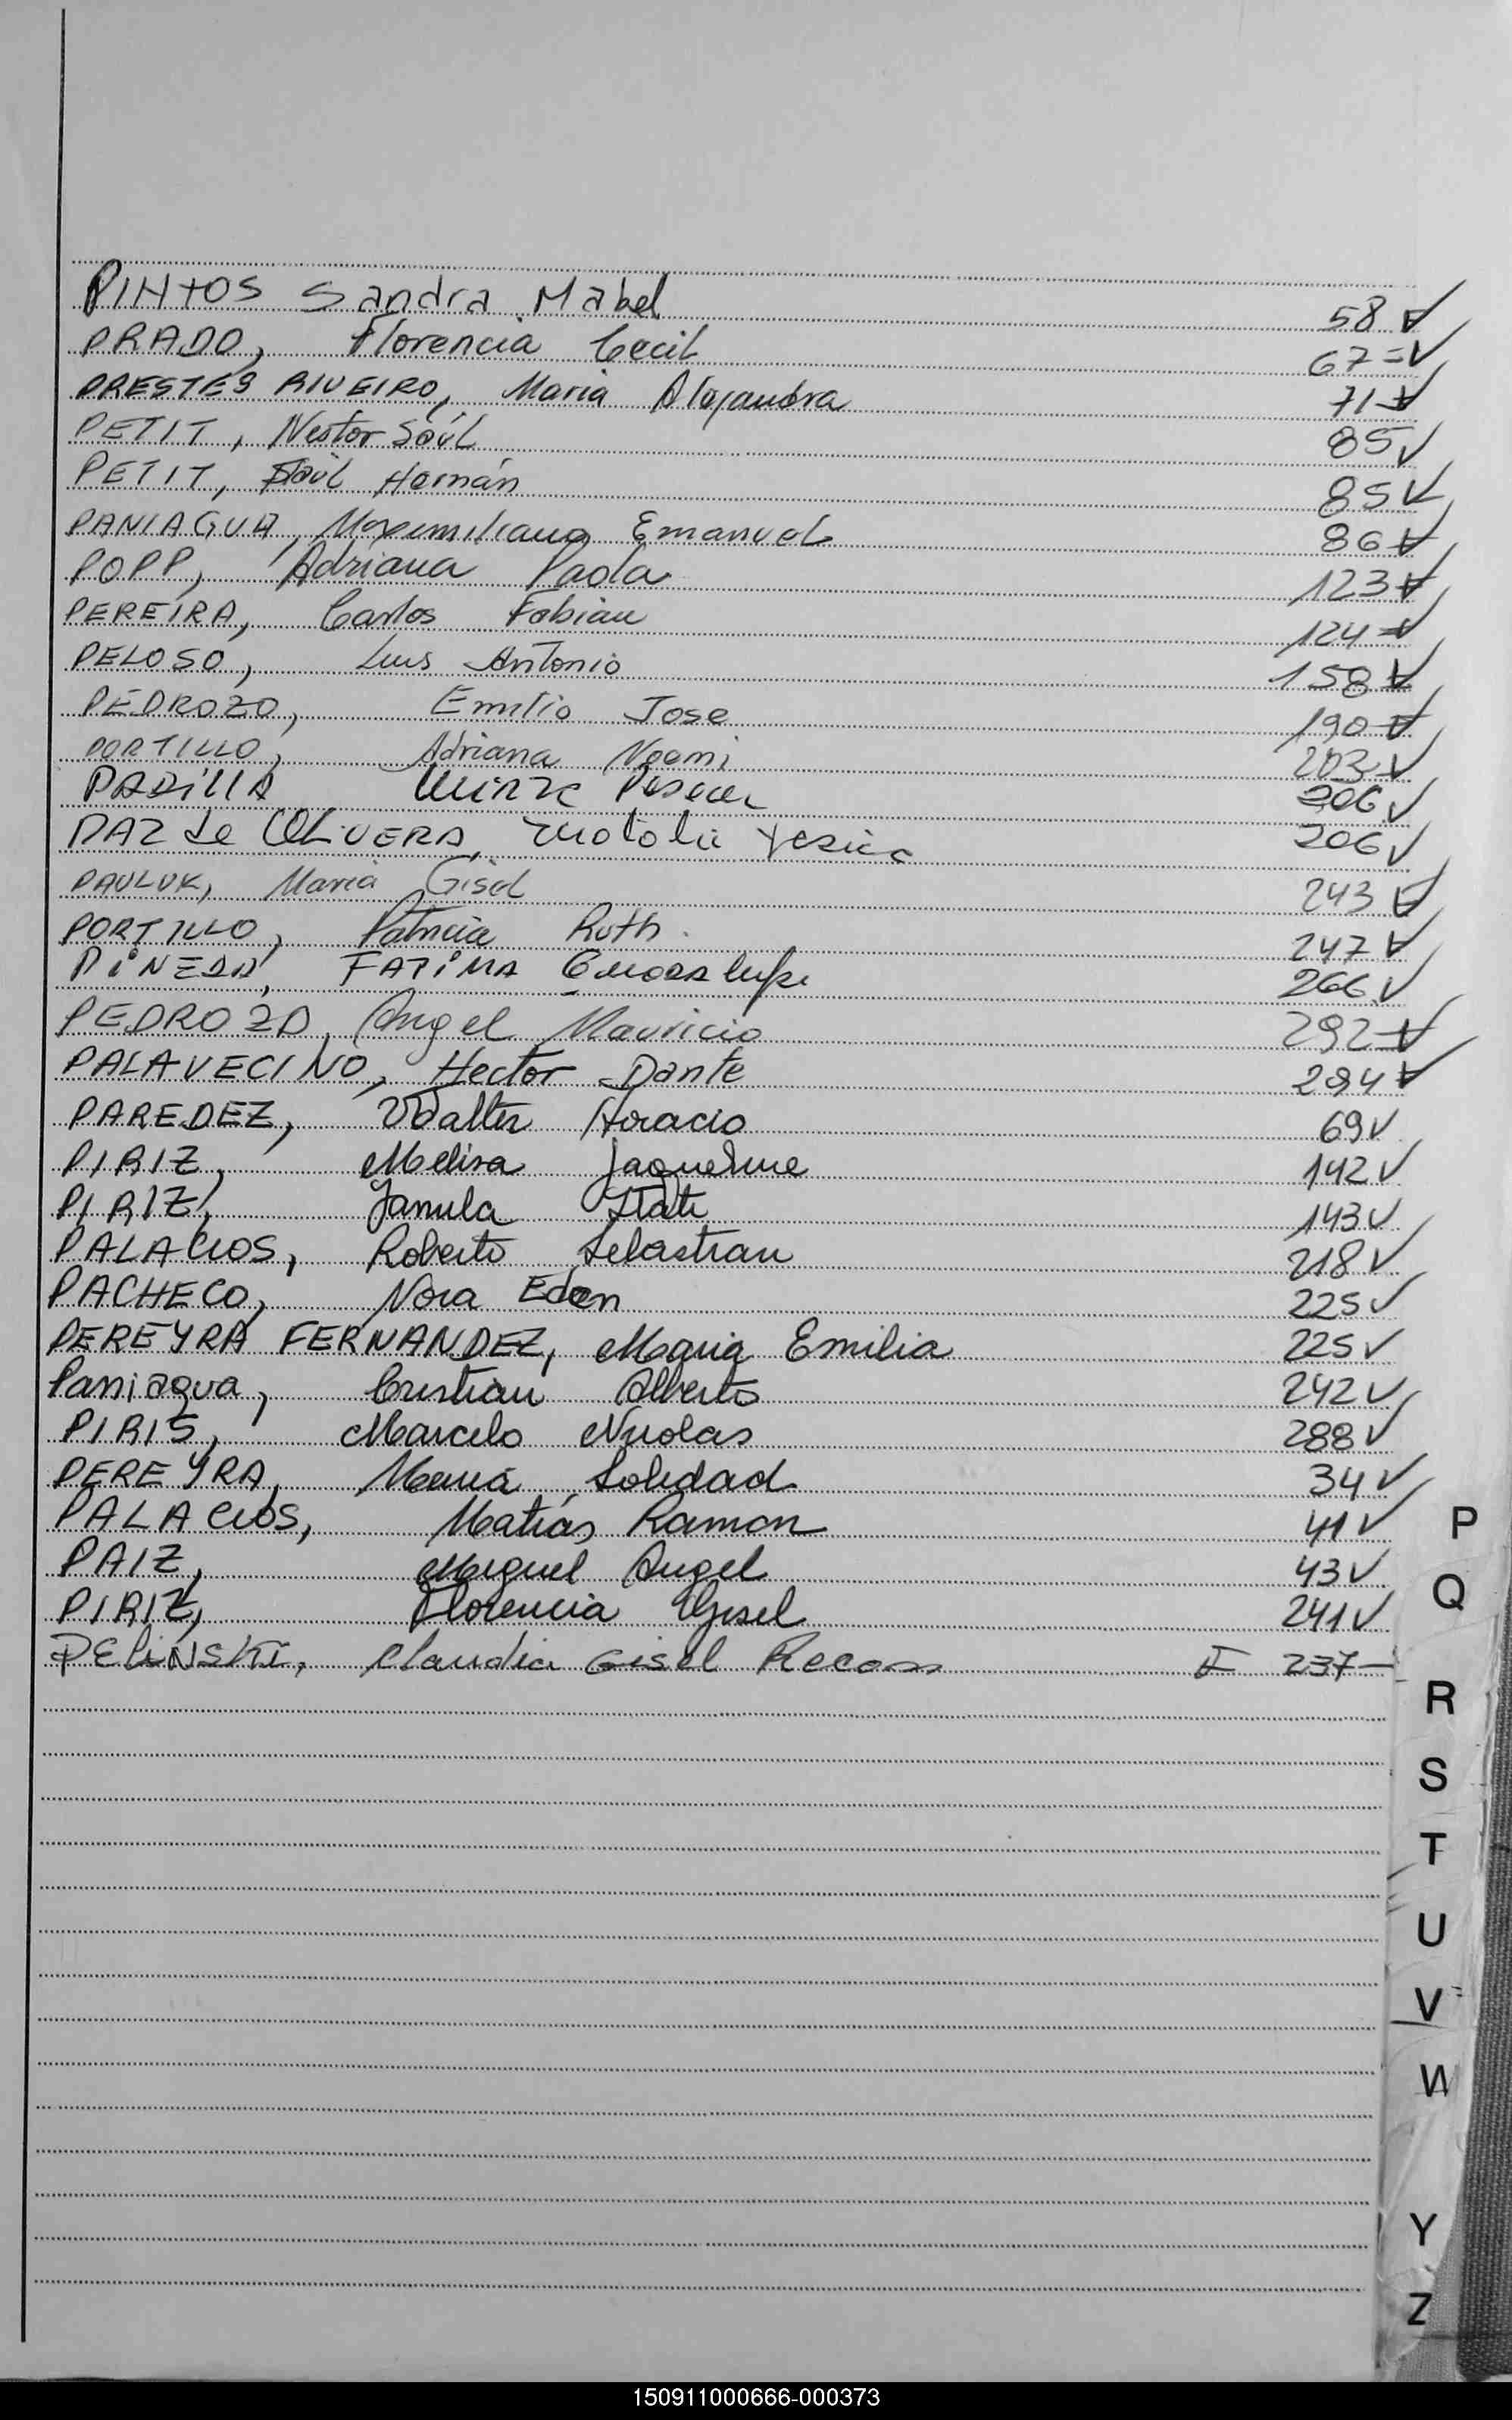 PINtOS Sandra Mabel 58 ✓
PRADO, Florencia Cecil 67 = ✓
PRESTES RIVEIRO, Maria Alejandra 71 ✓
PETIT, Nestor Saúl 85 ✓
PETIT, Raúl Hernán 85 ✓
PANIAGUA, Maximiliano Emanuel 86 ✓
POPP, Adriana Paola 123 ✓
PEREIRA, Carlos Fabian 124 ✓
PELOSO, Luis Antonio 158 ✓
PEDROZO, Emilio Jose 190 ✓
PORTILLO, Adriana Noemi 203 ✓
PADiLLA 206 ✓
PAZ de OLiVERA, Yesica 206 ✓
PAULUK, Maria Gisel 243 ✓
PORTILLO, Patricia Ruth. 247 ✓
PiNEDA, FATiMA Guadalupe 266 ✓
PEDROZO, Angel Mauricio 292 ✓
PALAVECINO, Hector Dante 294 ✓
PAREDEZ, Walter Horacio 69 ✓
PIRIZ, Melisa Jaqueline 142 ✓
PIRIZ, Itati 143 ✓
PALACIOS, Roberto Sebastian 218 ✓
PACHECO, Nora Eden 225 ✓
PEREYRA FERNANDEZ, Maria Emilia 225 ✓
Paniagua, Cristian Alberto 242 ✓
PIRIS, Marcelo Nicolas 288 ✓
PEREYRA, Maria Soledad 34 ✓
PALACIOS, Matías Ramon 41 ✓
PAIZ, Miguel Angel 43 ✓
PIRIZ, Florencia Gisel 241 ✓
PELiNSKI, Claudia Gisel 237 —
P
Q
R
S
T
U
V
W
Y
Z
150911000666-000373